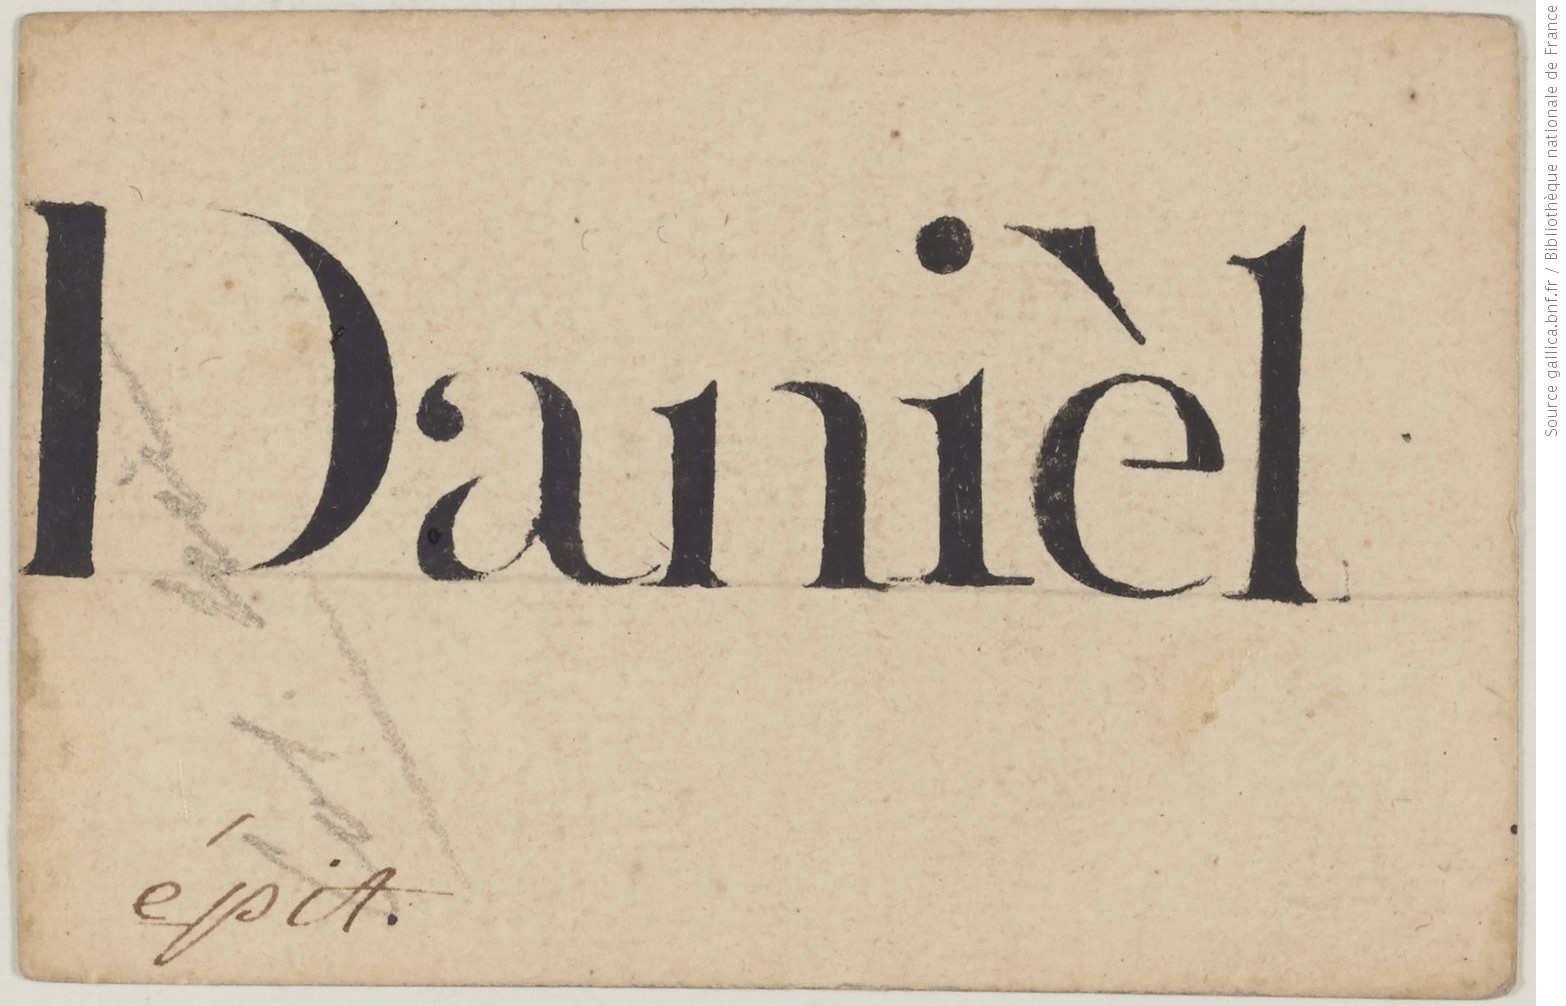 Danièl
épit.
Source gallica.bnf.fr / Bibliothèque nationale de France